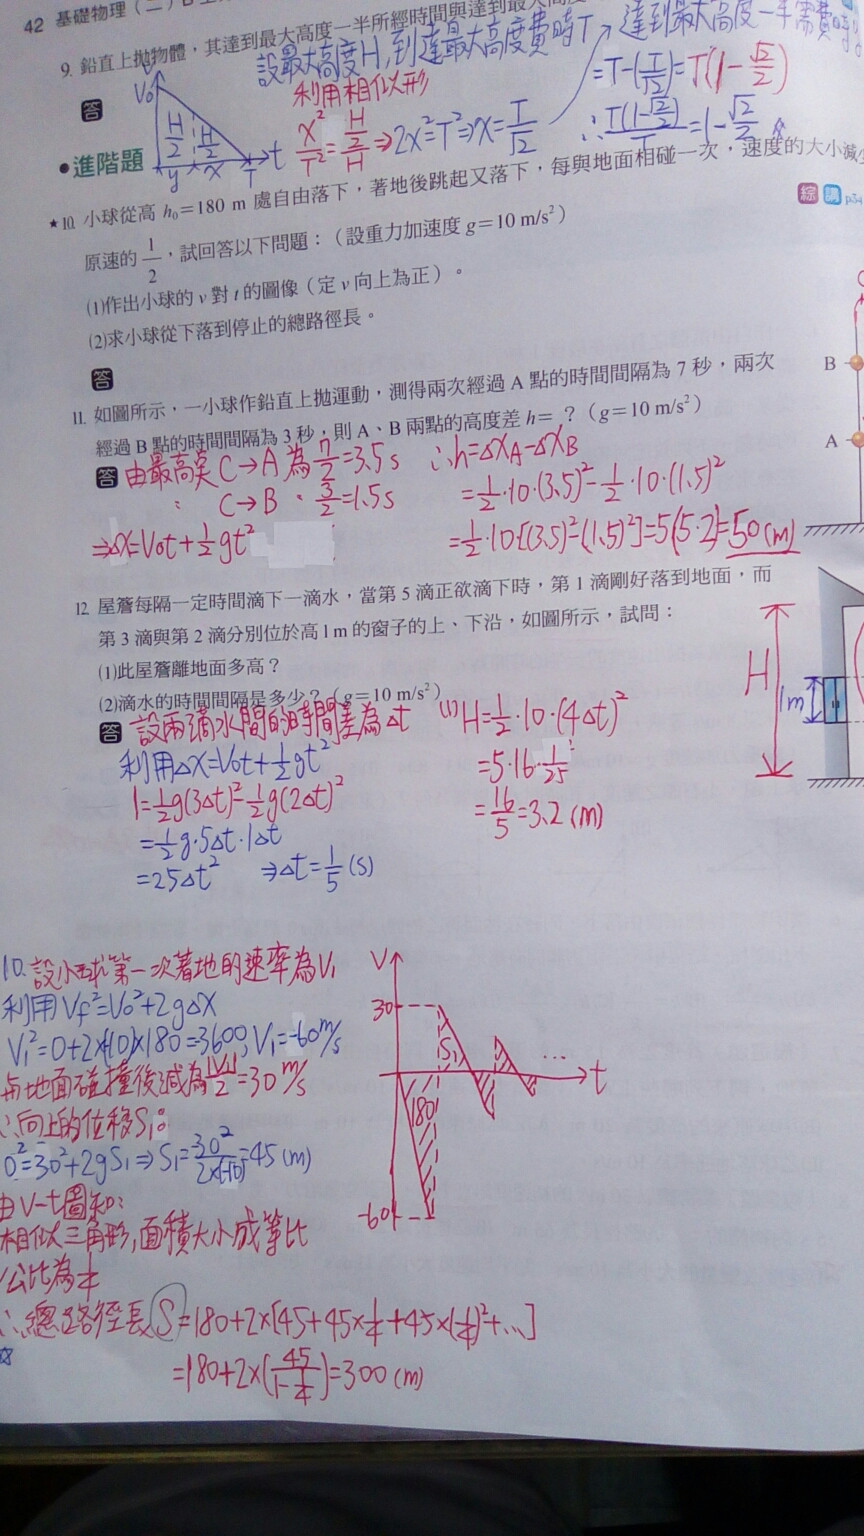 42 基礎物理（二）B
9. 鉛直上拋物體，其達到最大高度一半所經時間與達到最大高度
設最大高度H,到達最大高度費時T
達到最大高度一半需費時y
=T-(T/√2)=T(1-√2/2)
∴T(1-√2/2)/T=1-√2/2
答
V
V₀
H/2 H/2
y x T t
利用相似形
x²/T²=(H/2)/H⇒2x²=T²⇒x=T/√2
•進階題
綜 講
★10. 小球從高 h₀=180 m 處自由落下，著地後跳起又落下，每與地面相碰一次，速度的大小減
原速的 1/2，試回答以下問題：（設重力加速度 g=10 m/s²）
(1)作出小球的 v 對 t 的圖像（定 v 向上為正）。
(2)求小球從下落到停止的總路徑長。
答
11. 如圖所示，一小球作鉛直上拋運動，測得兩次經過 A 點的時間間隔為 7 秒，兩次
經過 B 點的時間間隔為 3 秒，則 A、B 兩點的高度差 h=？（g=10 m/s²）
B
A
答 由最高點 C→A 為 7/2=3.5s
C→B 3/2=1.5s
⇒Δx=V₀t+1/2gt²
∴h=ΔX_A-ΔX_B
=1/2·10·(3.5)²-1/2·10·(1.5)²
=1/2·10[(3.5)²-(1.5)²]=5(5·2)=50(m)
12. 屋簷每隔一定時間滴下一滴水，當第 5 滴正欲滴下時，第 1 滴剛好落到地面，而
第 3 滴與第 2 滴分別位於高 1 m 的窗子的上、下沿，如圖所示，試問：
(1)此屋簷離地面多高？
(2)滴水的時間間隔是多少？（g=10 m/s²）
H
1m
答 設兩滴水間的時間差為Δt
利用Δx=V₀t+1/2gt²
1=1/2g(3Δt)²-1/2g(2Δt)²
=1/2g·5Δt·1Δt
=25Δt² ⇒Δt=1/5(s)
(1)H=1/2·10·(4Δt)²
=5·16·1/25
=16/5=3.2(m)
10. 設小球第一次著地的速率為V₁
利用Vf²=V₀²+2gΔx
V₁²=0+2×(10)×180=3600, V₁=-60m/s
與地面碰撞後減為|V₁|/2=30 m/s
∴向上的位移S₁:
0²=30²+2gS₁⇒S₁=30²/2×(-10)=45(m)
由V-t圖知:
相似三角形,面積大小成等比
公比為1/4
∴總路徑長S=180+2×[45+45×1/4+45×(1/4)²+…]
=180+2×(45/(1-1/4))=300(m)
V
30
S₁
…
t
180
-60